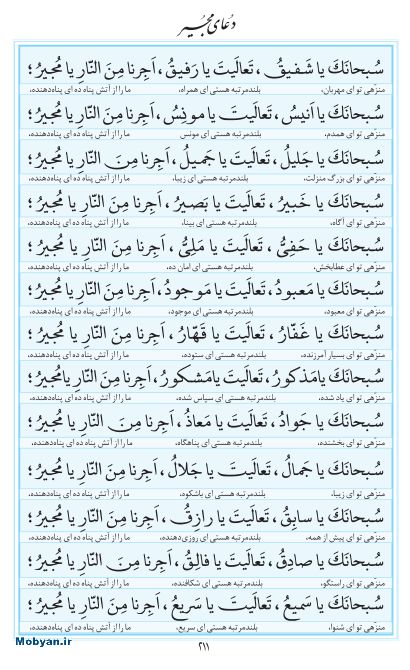 دعای مجیر
سُبحانَكَ یا شَفیقُ، تَعالَیتَ یا رَفیقُ، اَجِرنا مِنَ النّارِ یا مُجیرُ؛
منزّهی تو ای مهربان، بلندمرتبه هستی ای همراه، ما را از آتش پناه ده ای پناه‌دهنده،
سُبحانَكَ یا اَنیسُ، تَعالَیتَ یا مونِسُ، اَجِرنا مِنَ النّارِ یا مُجیرُ؛
منزّهی تو ای همدم، بلندمرتبه هستی ای مونس، ما را از آتش پناه ده ای پناه‌دهنده،
سُبحانَكَ یا جَلیلُ، تَعالَیتَ یا جَمیلُ، اَجِرنا مِنَ النّارِ یا مُجیرُ؛
منزّهی تو ای بزرگ منزلت، بلندمرتبه هستی ای زیبا، ما را از آتش پناه ده ای پناه‌دهنده،
سُبحانَكَ یا خَبیرُ، تَعالَیتَ یا بَصیرُ، اَجِرنا مِنَ النّارِ یا مُجیرُ؛
منزّهی تو ای آگاه، بلندمرتبه هستی ای بینا، ما را از آتش پناه ده ای پناه‌دهنده،
سُبحانَكَ یا حَفِیُّ، تَعالَیتَ یا مَلِیُّ، اَجِرنا مِنَ النّارِ یا مُجیرُ؛
منزّهی تو ای عطابخش، بلندمرتبه هستی ای امان ده، ما را از آتش پناه ده ای پناه‌دهنده،
سُبحانَكَ یا مَعبودُ، تَعالَیتَ یا مَوجودُ، اَجِرنا مِنَ النّارِ یا مُجیرُ؛
منزّهی تو ای معبود، بلندمرتبه هستی ای موجود، ما را از آتش پناه ده ای پناه‌دهنده،
سُبحانَكَ یا غَفّارُ، تَعالَیتَ یا قَهّارُ، اَجِرنا مِنَ النّارِ یا مُجیرُ؛
منزّهی تو ای بسیار آمرزنده، بلندمرتبه هستی ای ستوده، ما را از آتش پناه ده ای پناه‌دهنده،
سُبحانَكَ یا مَذکورُ، تَعالَیتَ یا مَشکورُ، اَجِرنا مِنَ النّارِ یا مُجیرُ؛
منزّهی تو ای یاد شده، بلندمرتبه هستی ای سپاس شده، ما را از آتش پناه ده ای پناه‌دهنده،
سُبحانَكَ یا جَوادُ، تَعالَیتَ یا مَعاذُ، اَجِرنا مِنَ النّارِ یا مُجیرُ؛
منزّهی تو ای بخشنده، بلندمرتبه هستی ای پناهگاه، ما را از آتش پناه ده ای پناه‌دهنده،
سُبحانَكَ یا جَمالُ، تَعالَیتَ یا جَلالُ، اَجِرنا مِنَ النّارِ یا مُجیرُ؛
منزّهی تو ای زیبا، بلندمرتبه هستی ای باشکوه، ما را از آتش پناه ده ای پناه‌دهنده،
سُبحانَكَ یا سابِقُ، تَعالَیتَ یا رازِقُ، اَجِرنا مِنَ النّارِ یا مُجیرُ؛
منزّهی تو ای پیش از همه، بلندمرتبه هستی ای روزی‌دهنده، ما را از آتش پناه ده ای پناه‌دهنده،
سُبحانَكَ یا صادِقُ، تَعالَیتَ یا فالِقُ، اَجِرنا مِنَ النّارِ یا مُجیرُ؛
منزّهی تو ای راستگو، بلندمرتبه هستی ای شکافنده، ما را از آتش پناه ده ای پناه‌دهنده،
سُبحانَكَ یا سَمیعُ، تَعالَیتَ یا سَریعُ، اَجِرنا مِنَ النّارِ یا مُجیرُ؛
منزّهی تو ای شنوا، بلندمرتبه هستی ای سریع، ما را از آتش پناه ده ای پناه‌دهنده،
۲۱۱
Mobyan.ir